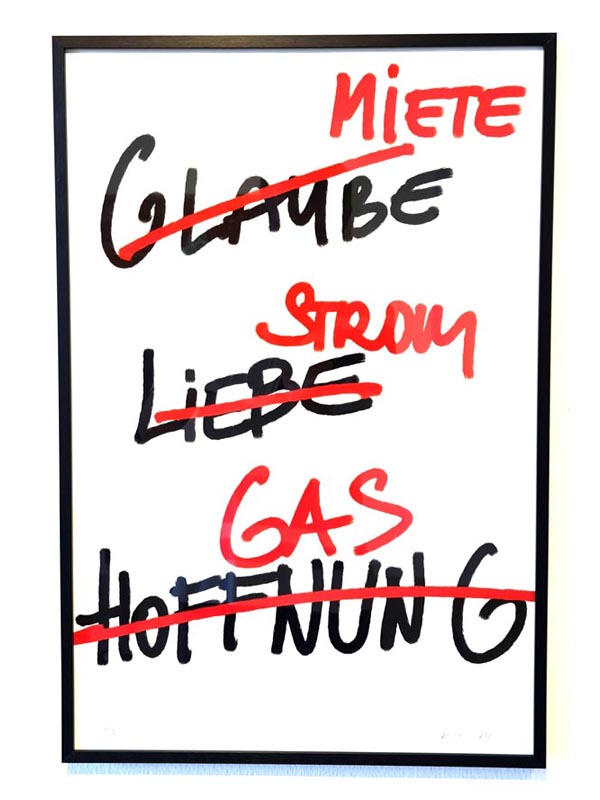 MiETE
GLAUBE
STROM
LiEBE
GAS
HOFFNUNG